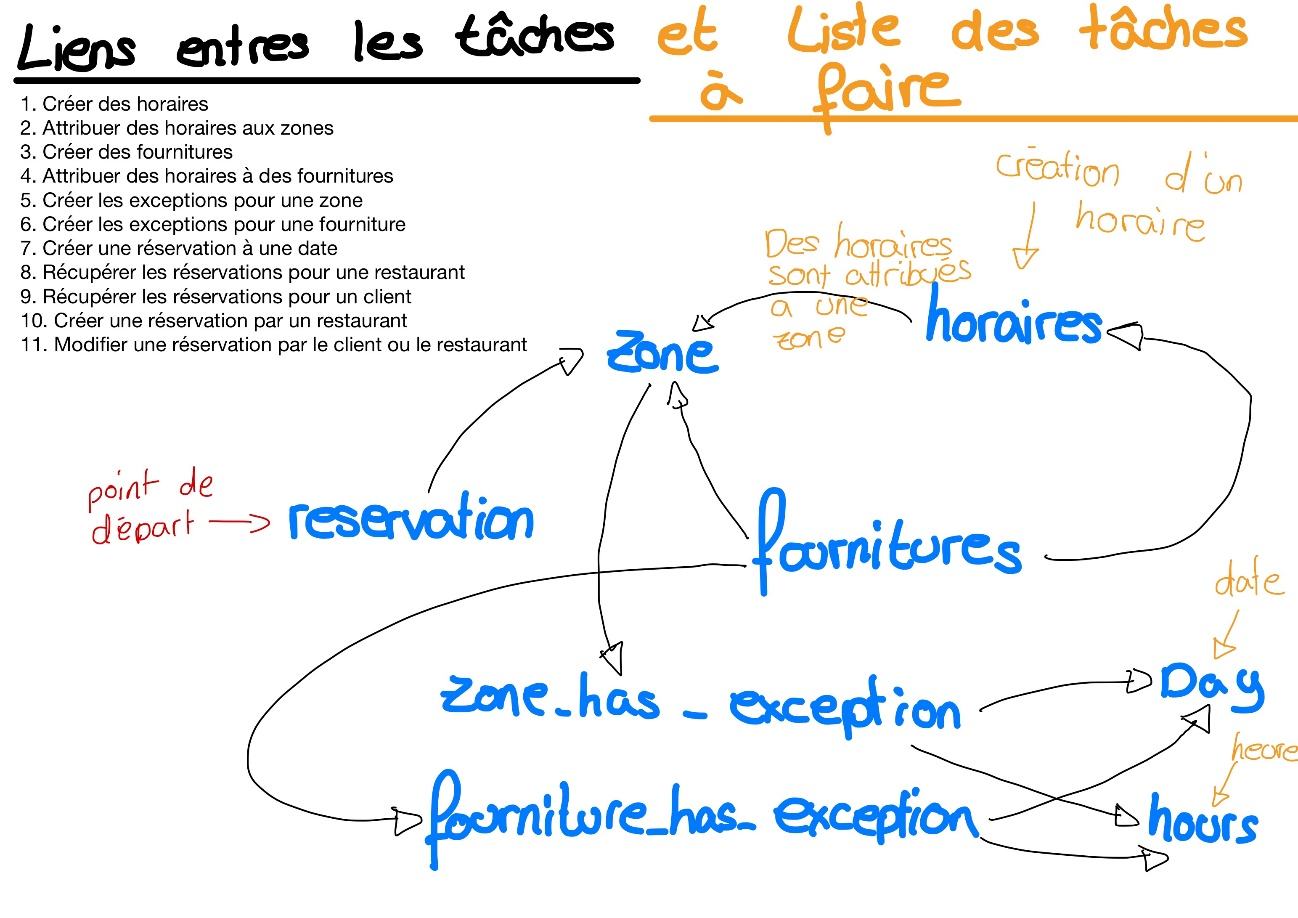 Liens entres les tâches et Liste des tâches
à faire
1. Créer des horaires
2. Attribuer des horaires aux zones
3. Créer des fournitures
4. Attribuer des horaires à des fournitures
5. Créer les exceptions pour une zone
6. Créer les exceptions pour une fourniture
7. Créer une réservation à une date
8. Récupérer les réservations pour une restaurant
9. Récupérer les réservations pour un client
10. Créer une réservation par un restaurant
11. Modifier une réservation par le client ou le restaurant
création d'un
horaire
Des horaires
sont attribués
a une
zone
horaires
zone
point de
départ
reservation
fournitures
date
zone_has_exception
Day
heure
fourniture_has_exception
hours